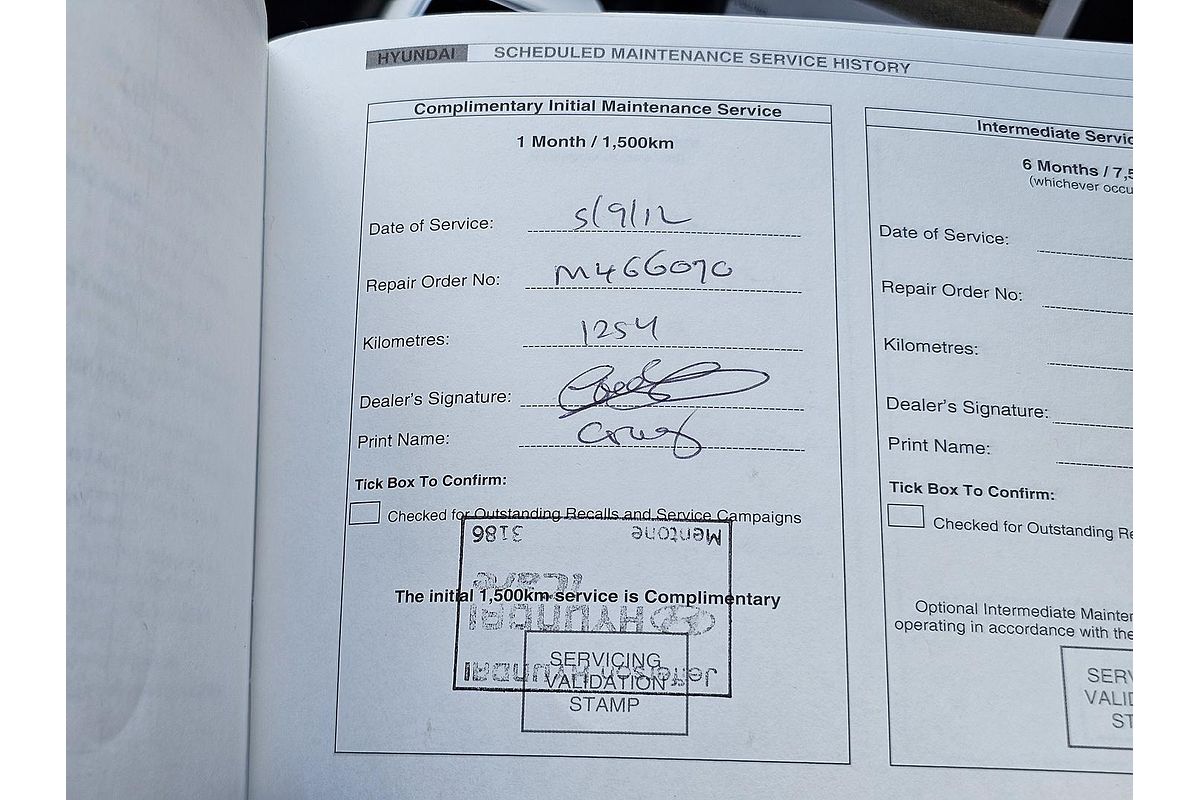 HYUNDAI SCHEDULED MAINTENANCE SERVICE HISTORY
Complimentary Initial Maintenance Service
1 Month / 1,500km
Date of Service: 5/9/12
Repair Order No: M466070
Kilometres: 1254
Dealer's Signature:
Print Name:
Tick Box To Confirm:
Checked for Outstanding Recalls and Service Campaigns
Mentone 3186
The initial 1,500km service is Complimentary
iCare
HYUNDAI
Jefferson HYUNDAI
SERVICING
VALIDATION
STAMP
Intermediate Servic
6 Months / 7,5
(whichever occu
Date of Service:
Repair Order No:
Kilometres:
Dealer's Signature:
Print Name:
Tick Box To Confirm:
Checked for Outstanding Re
Optional Intermediate Mainter
operating in accordance with the
SERV
VALI
ST